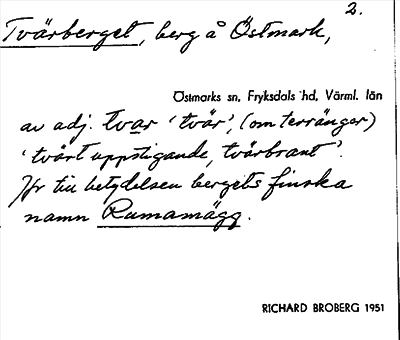 2.
Tvärberget, berg å Östmark,
Östmarks sn, Fryksdals hd, Värml. län
av adj. tvar 'tvär', (om terränger)
'tvärt uppstigande, tvärbrant'.
Jfr till betydelsen bergets finska
namn Rumamägg.
RICHARD BROBERG 1951